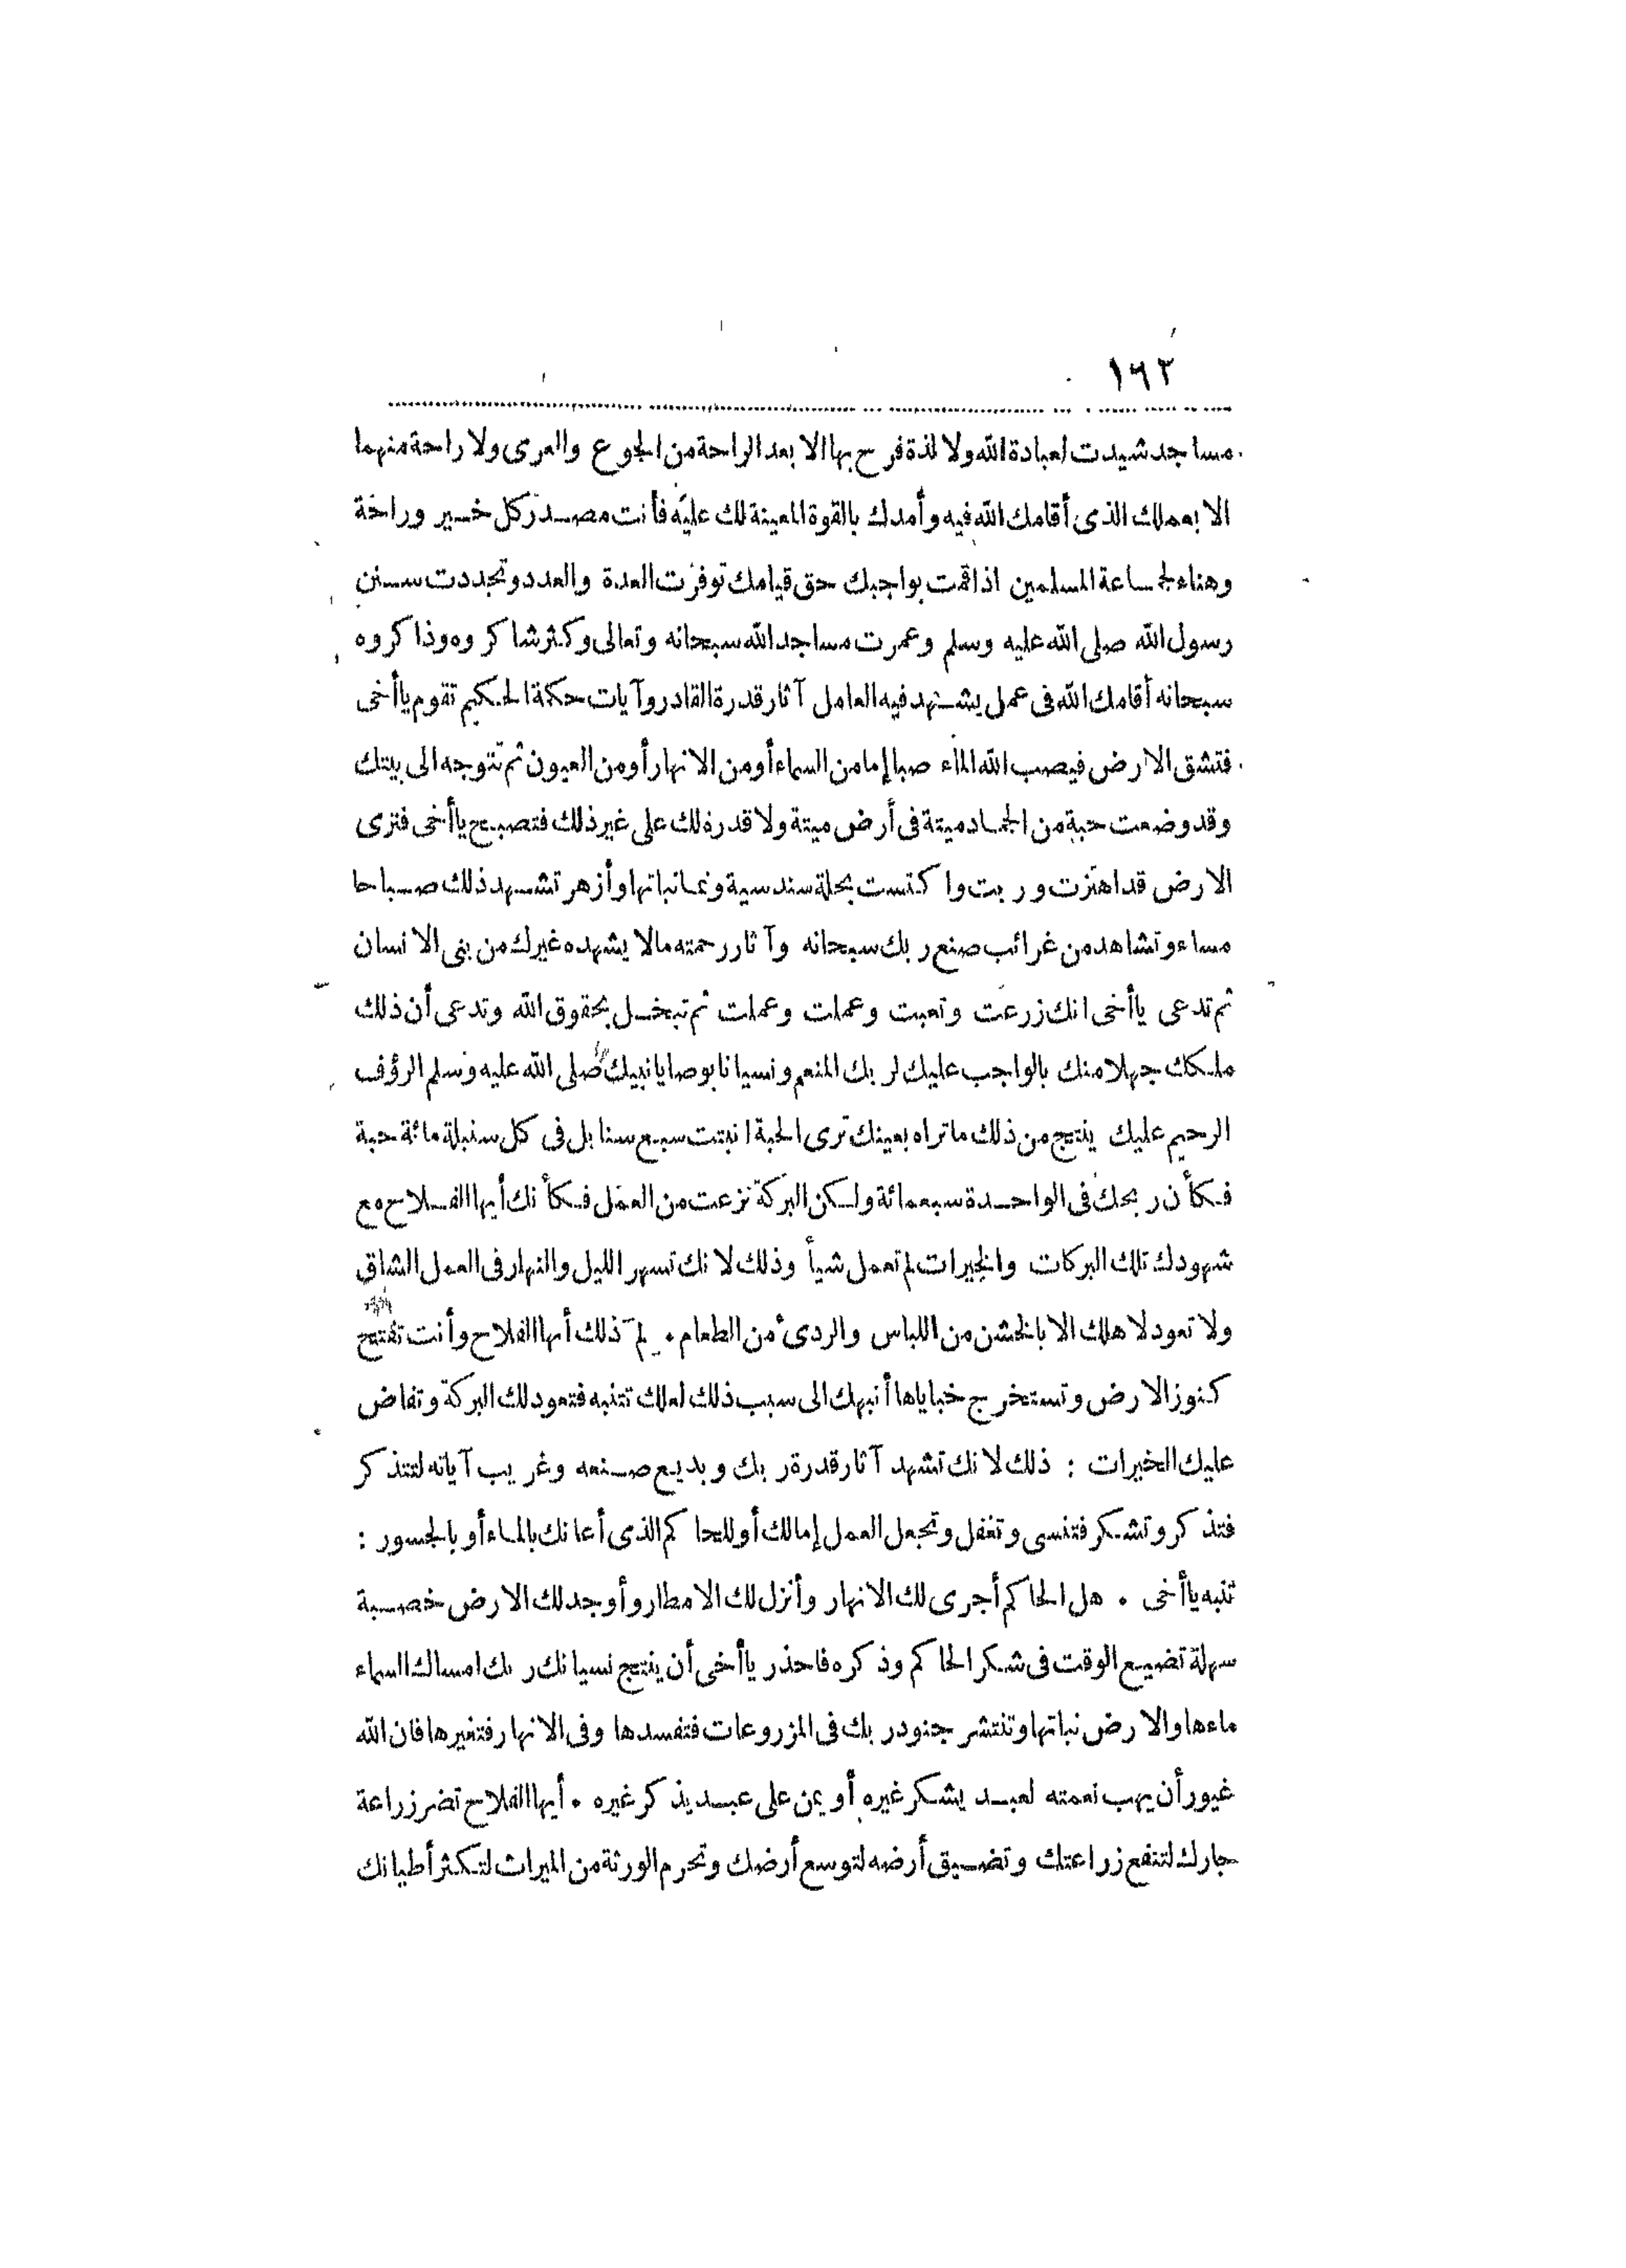 ١٦٢
مساجد شيدت لعبادة الله ولا لذة فرح بها الا بعد الراحة من الجوع والعرى ولا راحة منهما
الا بعملك الذى أقامك الله فيه وأمدك بالقوة المعينة لك عليه فأنت مصدر كل خير وراحة
وهناء لجماعة المسلمين اذا قمت بواجبك حق قيامك توفرت العدة والعدد وتجددت سنن
رسول الله صلى الله عليه وسلم وعمرت مساجد الله سبحانه وتعالى وكثر شاكروه وذاكروه
سبحانه أقامك الله فى عمل يشهد فيه العامل آثار قدرة القادر وآيات حكمة الحكيم تقوم ياأخى
فتشق الارض فيصب الله الماء صبا إما من السماء أو من الانهار أو من العيون ثم تتوجه الى بيتك
وقد وضعت حبة من الجماد ميتة فى أرض ميتة ولا قدرة لك على غير ذلك فتصبح ياأخى فترى
الارض قد اهتزت وربت واكتست بحلة سندسية ونما نباتها وأزهر تشهد ذلك صباحا
مساء وتشاهد من غرائب صنع ربك سبحانه وآثار رحمته مالا يشهده غيرك من بنى الانسان
ثم تدعى ياأخى انك زرعت وتعبت وعملت وعملت ثم تبخل بحقوق الله وتدعى أن ذلك
ملكك جهلا منك بالواجب عليك لربك المنعم ونسيانا بوصايا نبيك صلى الله عليه وسلم الرؤف
الرحيم عليك ينتج من ذلك ماتراه بعينك ترى الحبة انبتت سبع سنابل فى كل سنبلة مائة حبة
فكأن ربحك فى الواحدة سبعمائة ولكن البركة نزعت من العمل فكأنك أيها الفلاح مع
شهودك تلك البركات والخيرات لم تعمل شيأ وذلك لانك تسهر الليل والنهار فى العمل الشاق
ولا تعود لاهلك الا بالخشن من اللباس والردىء من الطعام . لم ذلك أيها الفلاح وأنت تفتح
كنوز الارض وتستخرج خباياها أنبهك الى سبب ذلك لعلك تتنبه فتعود لك البركة وتفاض
عليك الخيرات : ذلك لانك تشهد آثار قدرة ربك وبديع صنعه وغريب آياته لتتذكر
فتذكر وتشكر فتنسى وتغفل وتجعل العمل إما لك أو للحاكم الذى أعانك بالماء أو بالجسور :
تنبه ياأخى . هل الحاكم أجرى لك الانهار وأنزل لك الامطار وأوجد لك الارض خصبة
سهلة تضيع الوقت فى شكر الحاكم وذكره فاحذر ياأخى أن ينتج نسيانك ربك امساك السماء
ماءها والارض نباتها وتنتشر جنود ربك فى المزروعات فتفسدها وفى الانهار فتغيرها فان الله
غيور أن يهب نعمته لعبد يشكر غيره أو يمن على عبد يذكر غيره . أيها الفلاح تضر زراعة
جارك لتنفع زراعتك وتضيق أرضه لتوسع أرضك وتحرم الورثة من الميراث لتكثر أطيانك